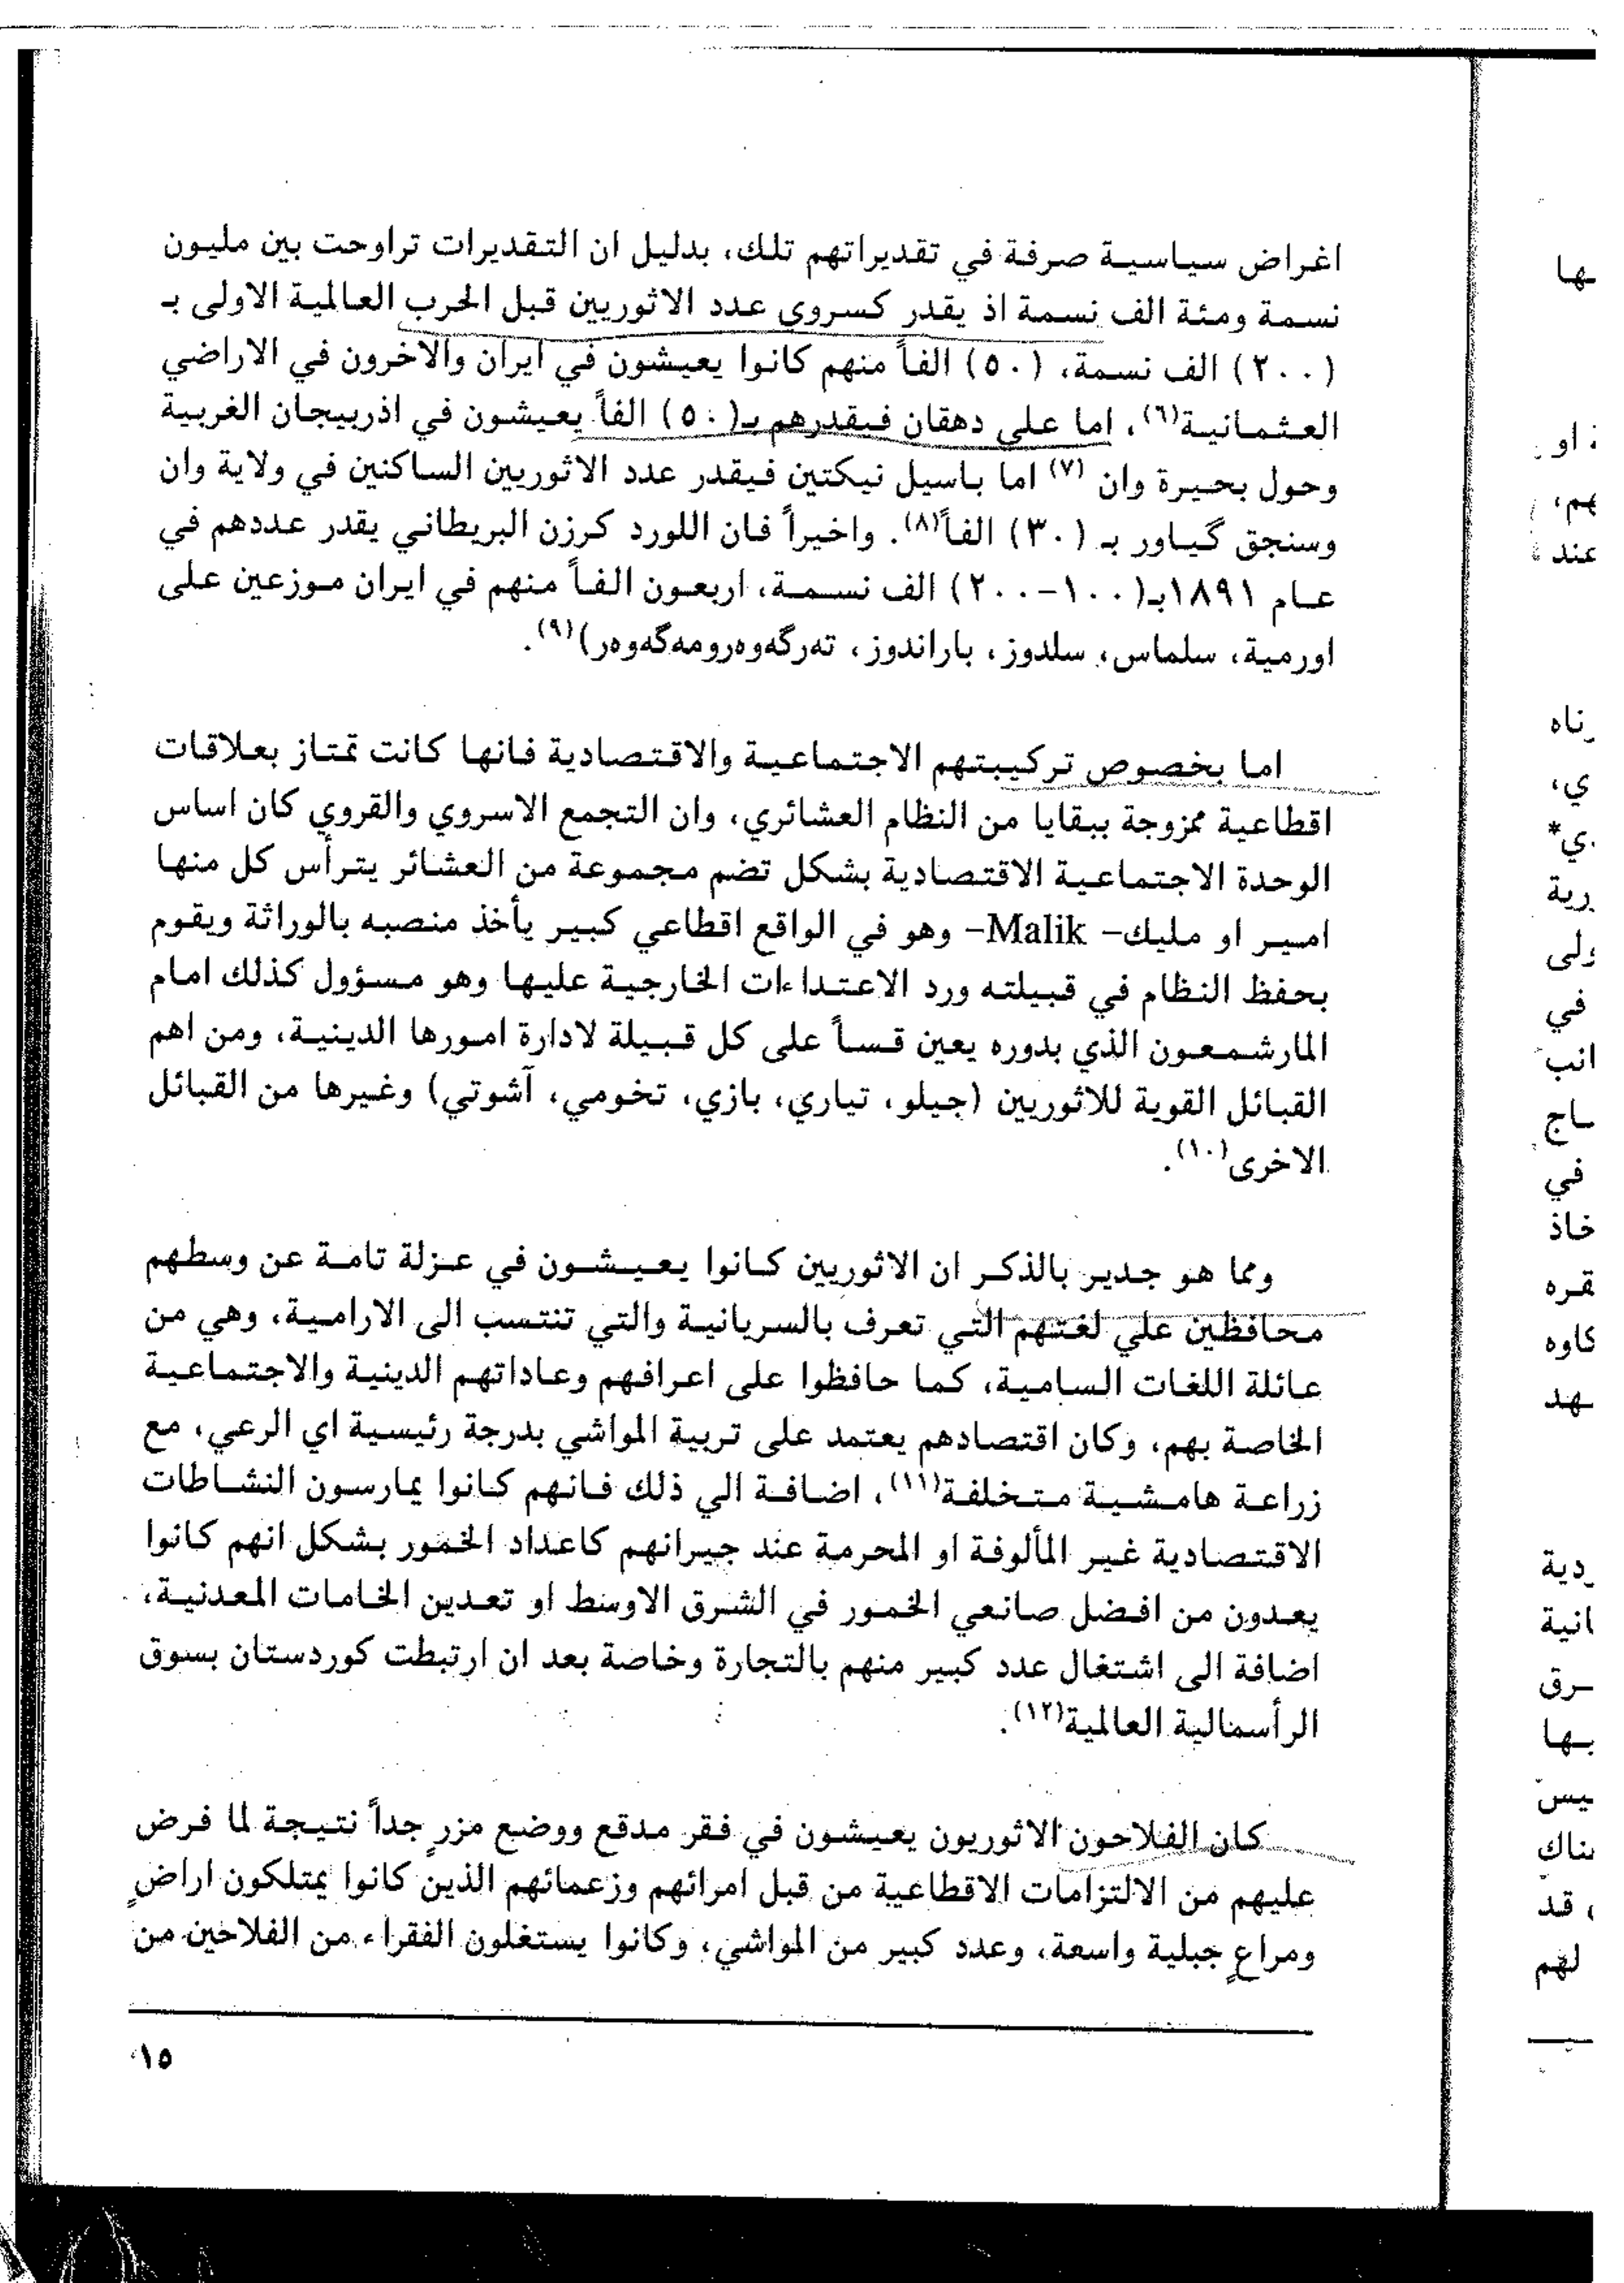 اغراض سياسية صرفة في تقديراتهم تلك، بدليل ان التقديرات تراوحت بين مليون
نسمة ومئة الف نسمة اذ يقدر كسروي عدد الاثوريين قبل الحرب العالمية الاولى بـ
(٢٠٠) الف نسمة، (٥٠) الفاً منهم كانوا يعيشون في ايران والآخرون في الاراضي
العثمانية(٦)، اما علي دهقان فيقدرهم بـ(٥٠) الفاً يعيشون في اذربيجان الغربية
وحول بحيرة وان (٧) اما باسيل نيكتين فيقدر عدد الاثوريين الساكنين في ولاية وان
وسنجق گياور بـ (٣٠) الفاً(٨). واخيراً فان اللورد كرزن البريطاني يقدر عددهم في
عام ١٨٩١بـ(١٠٠-٢٠٠) الف نسمة، اربعون الفاً منهم في ايران موزعين على
اورمية، سلماس، سلدوز، باراندوز، تەرگەوەرومەگەوەر)(٩).
اما بخصوص تركيبتهم الاجتماعية والاقتصادية فانها كانت تمتاز بعلاقات
اقطاعية ممزوجة ببقايا من النظام العشائري، وان التجمع الاسروي والقروي كان اساس
الوحدة الاجتماعية الاقتصادية بشكل تضم مجموعة من العشائر يترأس كل منها
امير او مليك- Malik- وهو في الواقع اقطاعي كبير يأخذ منصبه بالوراثة ويقوم
بحفظ النظام في قبيلته ورد الاعتداءات الخارجية عليها وهو مسؤول كذلك امام
المارشمعون الذي بدوره يعين قساً على كل قبيلة لادارة امورها الدينية، ومن اهم
القبائل القوية للاثوريين (جيلو، تياري، بازي، تخومي، آشوتي) وغيرها من القبائل
الاخرى(١٠).
ومما هو جدير بالذكر ان الاثوريين كانوا يعيشون في عزلة تامة عن وسطهم
محافظين علي لغتهم التي تعرف بالسريانية والتي تنتسب الى الارامية، وهي من
عائلة اللغات السامية، كما حافظوا على اعرافهم وعاداتهم الدينية والاجتماعية
الخاصة بهم، وكان اقتصادهم يعتمد على تربية المواشي بدرجة رئيسية اي الرعي، مع
زراعة هامشية متخلفة(١١)، اضافة الي ذلك فانهم كانوا يمارسون النشاطات
الاقتصادية غير المألوفة او المحرمة عند جيرانهم كاعداد الخمور بشكل انهم كانوا
يعدون من افضل صانعي الخمور في الشرق الاوسط او تعدين الخامات المعدنية،
اضافة الى اشتغال عدد كبير منهم بالتجارة وخاصة بعد ان ارتبطت كوردستان بسوق
الرأسمالية العالمية(١٢).
كان الفلاحون الاثوريون يعيشون في فقر مدقع ووضع مزرٍ جداً نتيجة لما فرض
عليهم من الالتزامات الاقطاعية من قبل امرائهم وزعمائهم الذين كانوا يمتلكون اراضٍ
ومراعٍ جبلية واسعة، وعدد كبير من المواشي، وكانوا يستغلون الفقراء من الفلاحين من
١٥